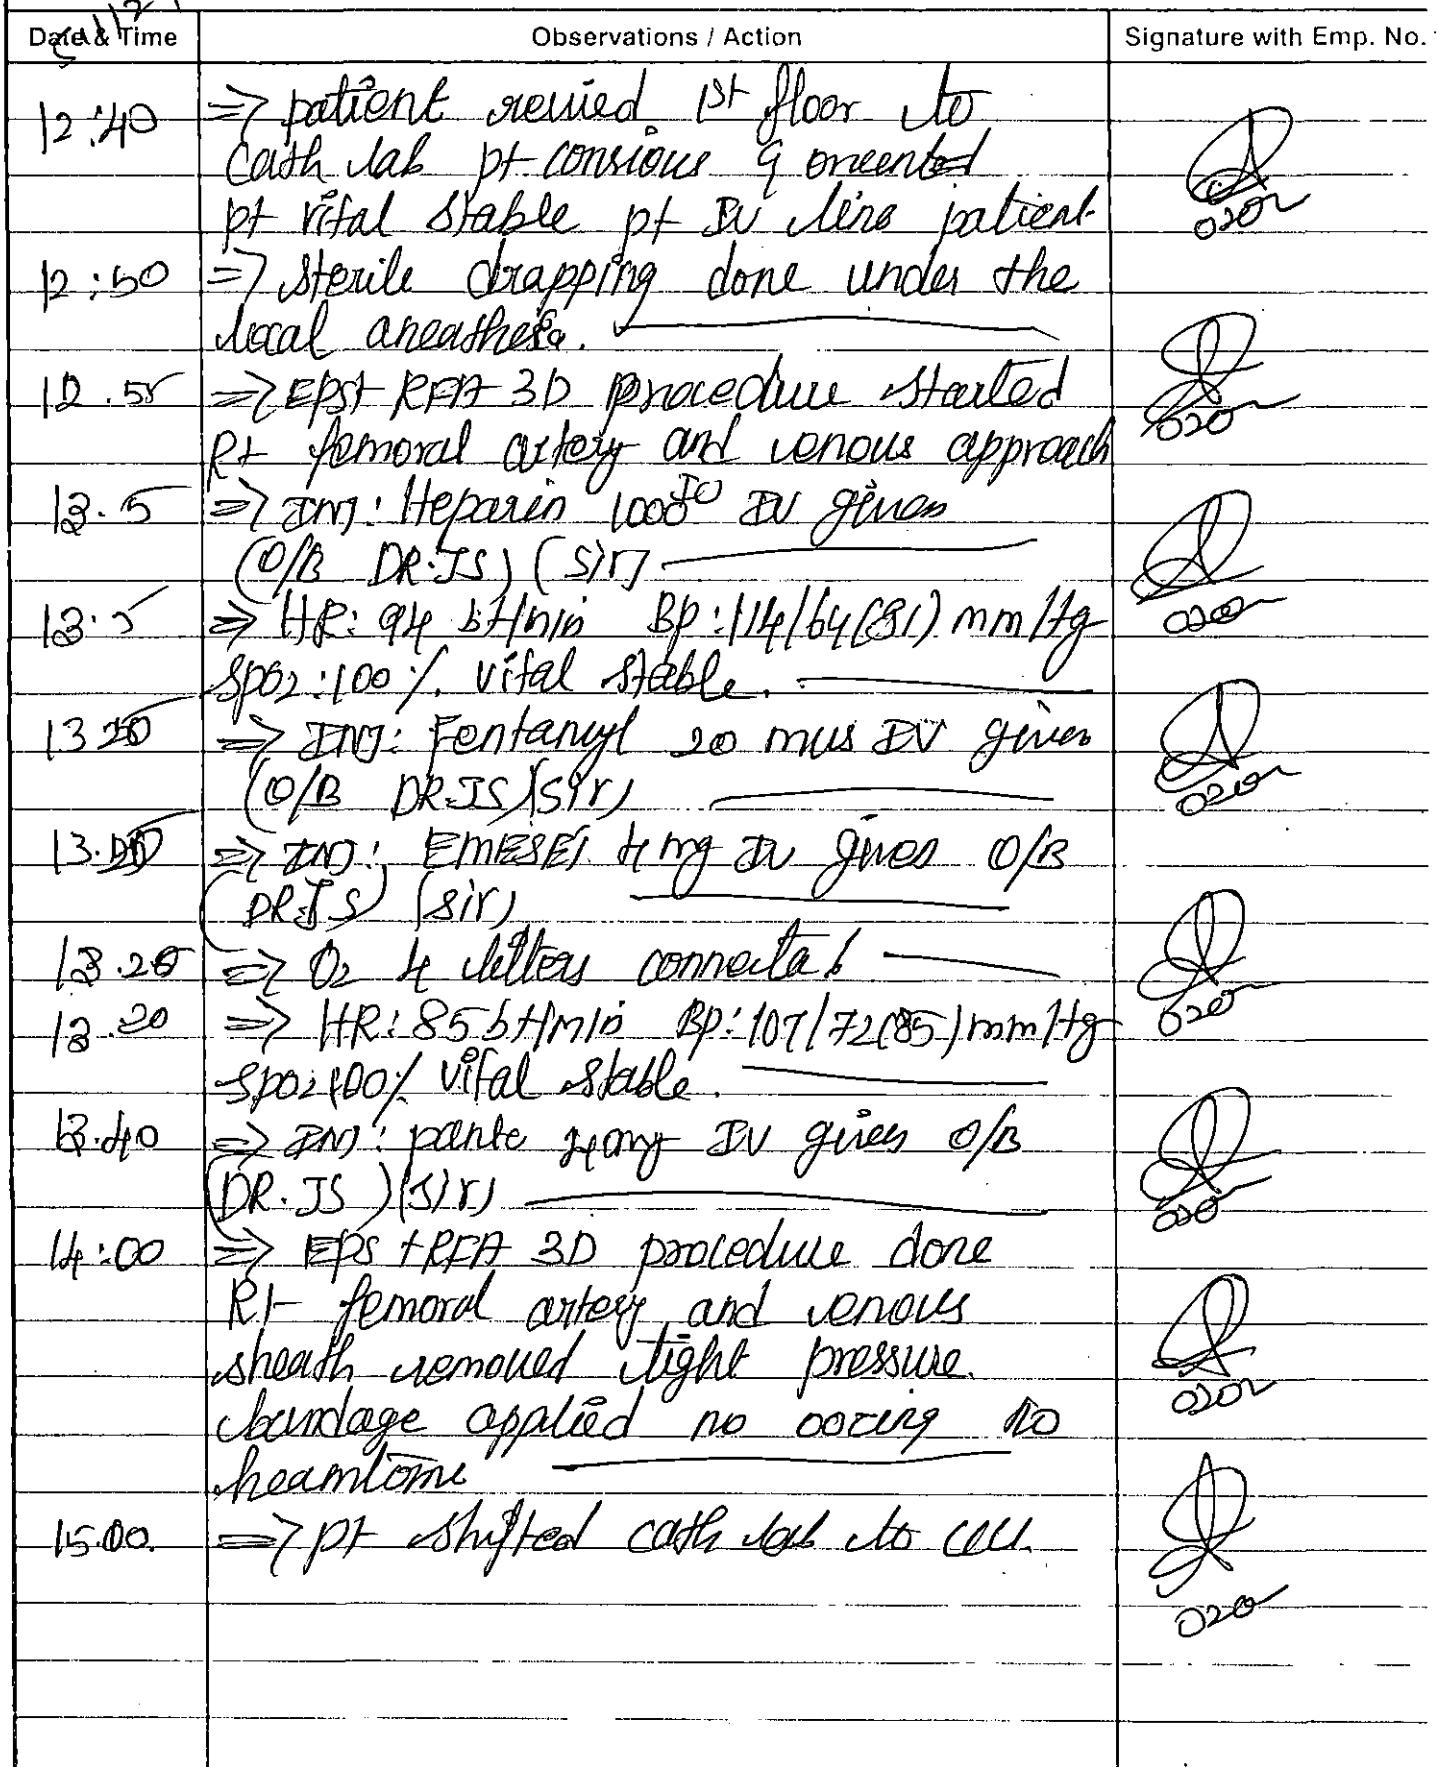 Date & Time Observations / Action Signature with Emp. No.
12:40 => patient revied 1st floor to
cath lab pt consious & oreented
pt vital stable pt IV line patient
12:50 => Sterile drapping done under the
local aneathesia.
12.55 => EPS+ RFA 3D procedure started
Rt femoral artery and venous approach
13.5 => INJ: Heparin 1000 IU IV given
(O/B DR.JS) (sir)
13.5 => HR: 94 bt/min Bp:114/64(81) mm/Hg
Spo2:100%. vital stable.
13 20 => INJ: Fentanyl 20 mus IV given
(O/B DR.JS)(Sir)
=> INJ: EMESET 4 mg IV given O/B
(DR.JS) (sir)
13.20 => O2 4 litters connected
13.20 => HR: 85 bt/min Bp: 107/72(85) mm/Hg
Spo2 100% vital stable.
13.40 => INJ: pante 40mg IV given O/B
(DR.JS)(Sir)
14:00 => EPS +RFA 3D procedure done
Rt femoral artery and venous
sheath removed tight pressure
bandage applied no oozing no
heamtome
15.00. => pt shifted cath lab to CCU.